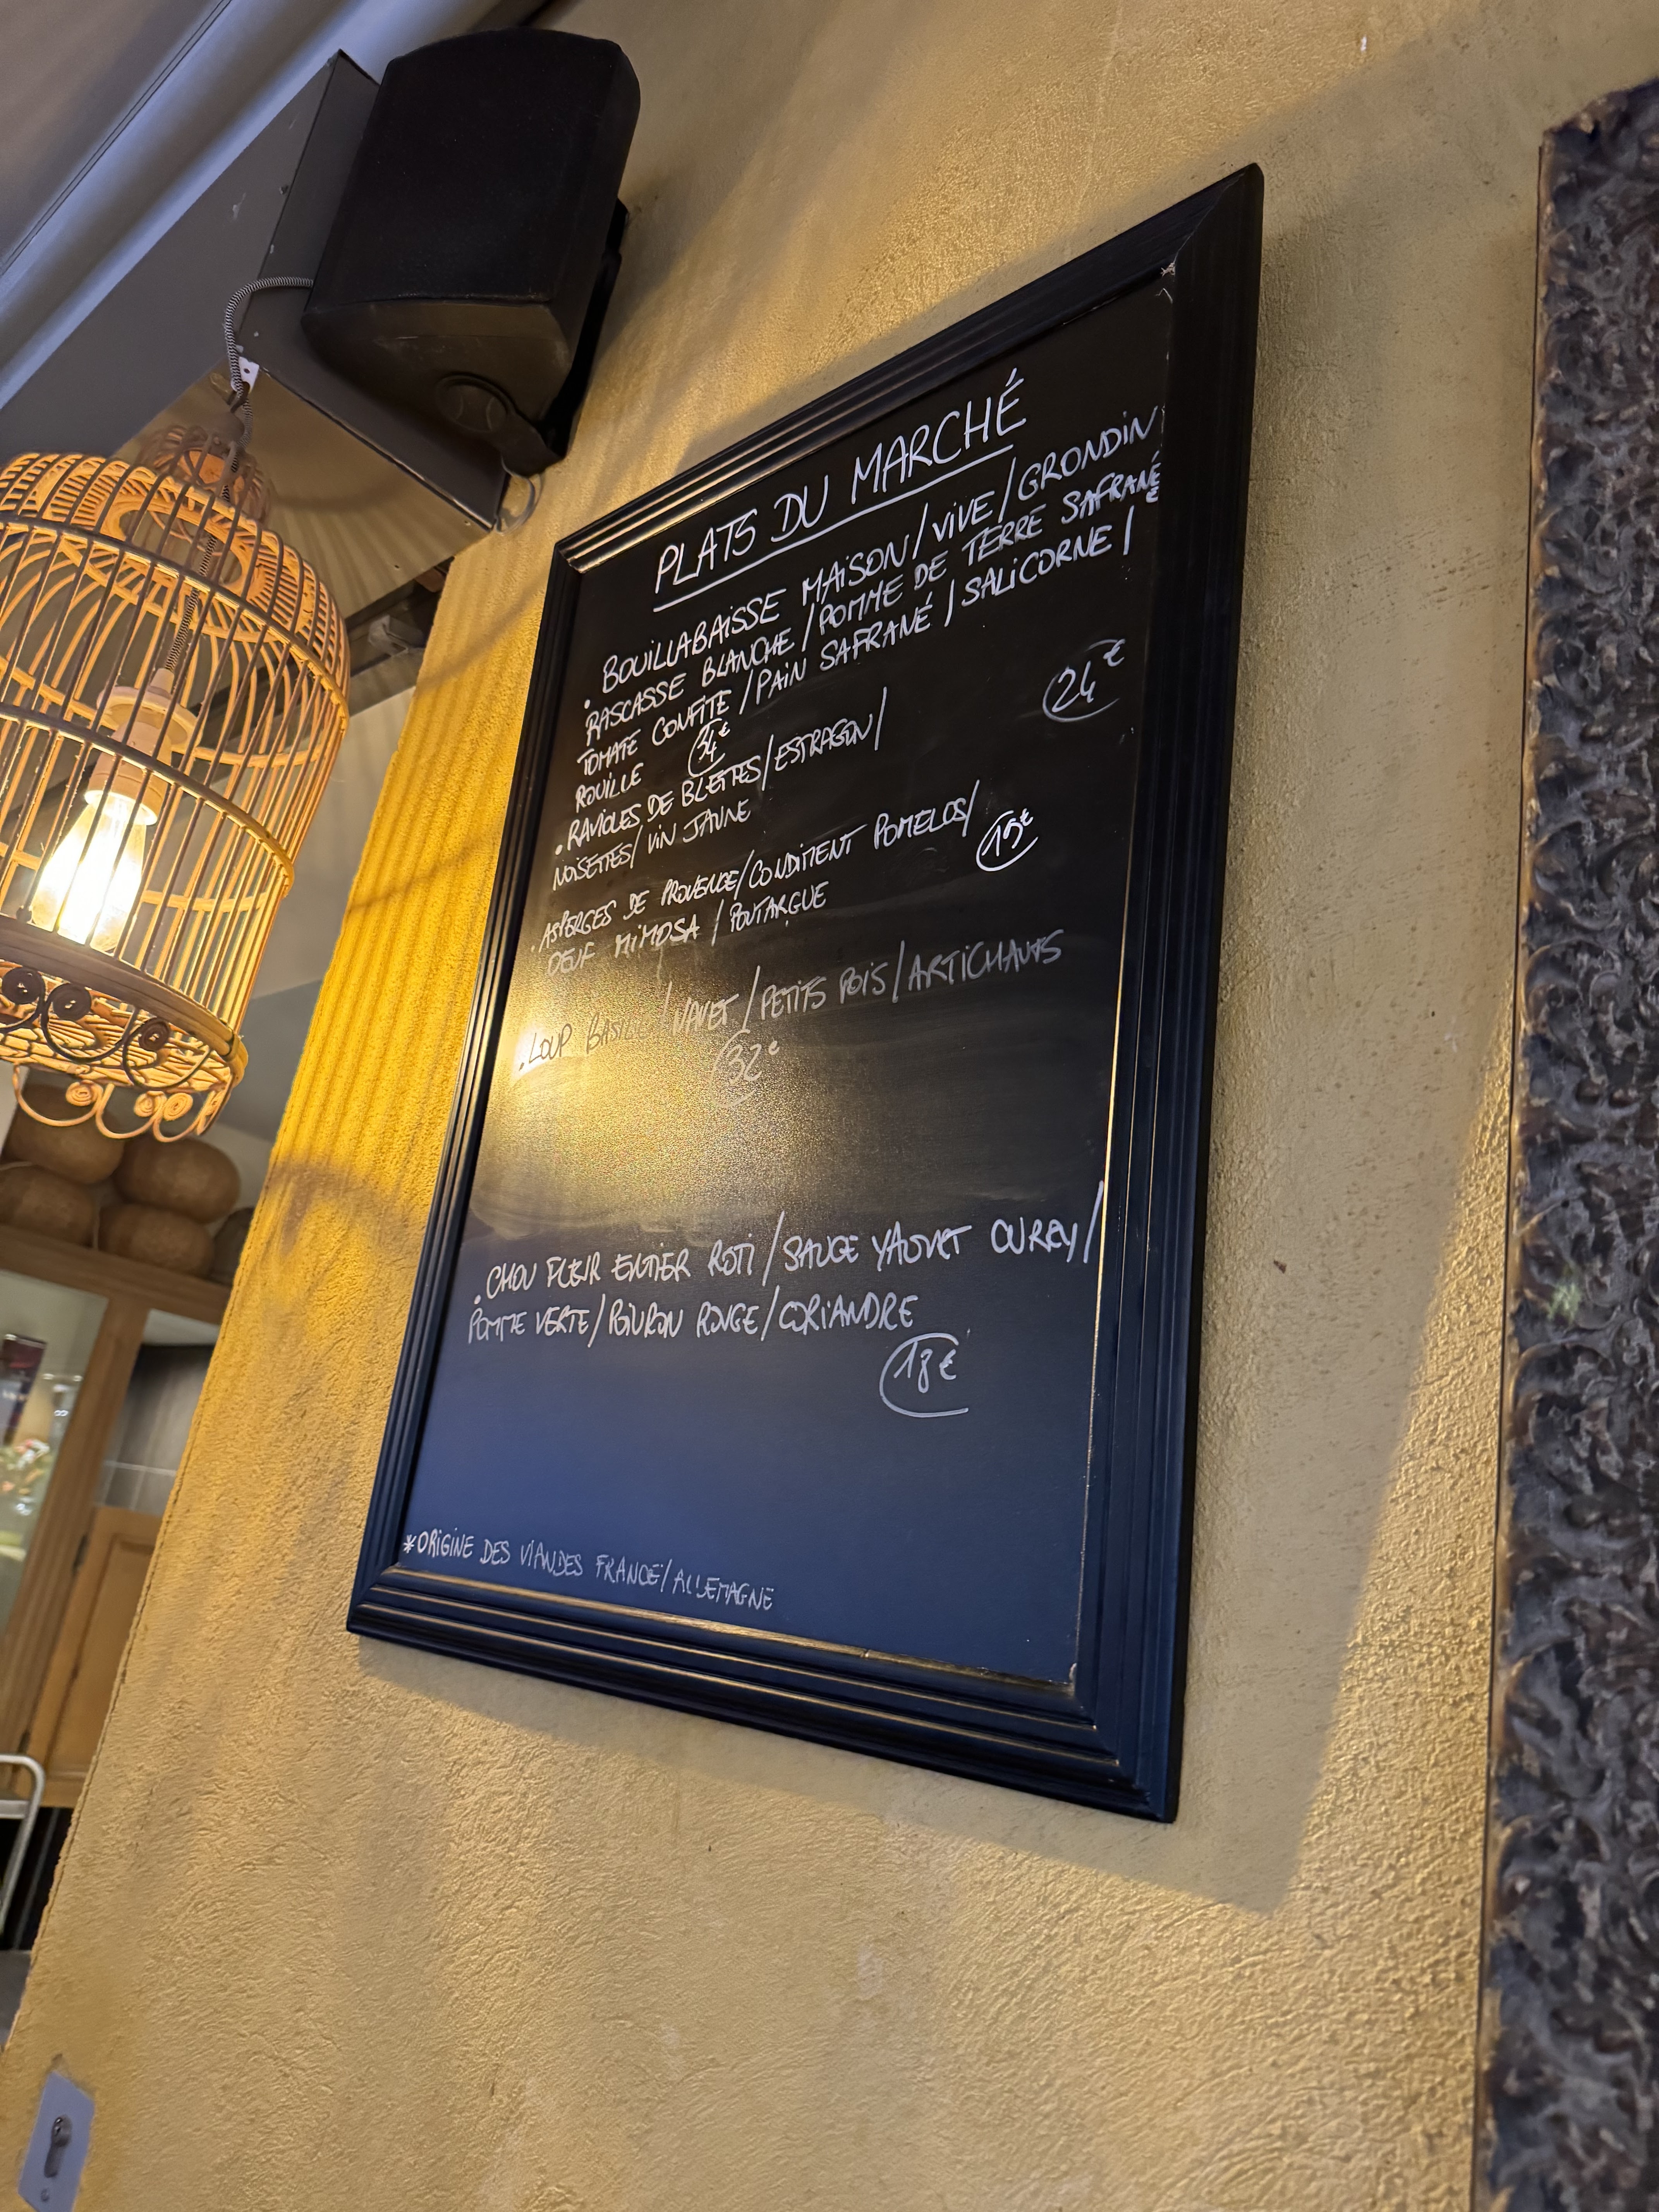 PLATS DU MARCHÉ
. BOUILLABAISSE MAISON / VIVE / GRONDIN
RASCASSE BLANCHE / POMME DE TERRE SAFRANÉE
TOMATE CONFITE / PAIN SAFRANÉ / SALICORNE /
ROUILLE 34€
. RAVIOLES DE BLETTES / ESTRAGON / 24€
NOISETTES / VIN JAUNE
. ASPERGES DE PROVENCE / CONDIMENT POMELOS / 19€
OEUF MIMOSA / POUTARGUE
. LOUP BASILIC / NAVET / PETITS POIS / ARTICHAUTS
32€
. CHOU FLEUR ENTIER ROTI / SAUCE YAOURT CURRY /
POMME VERTE / POIVRON ROUGE / CORIANDRE
18€
*ORIGINE DES VIANDES FRANCE / ALLEMAGNE